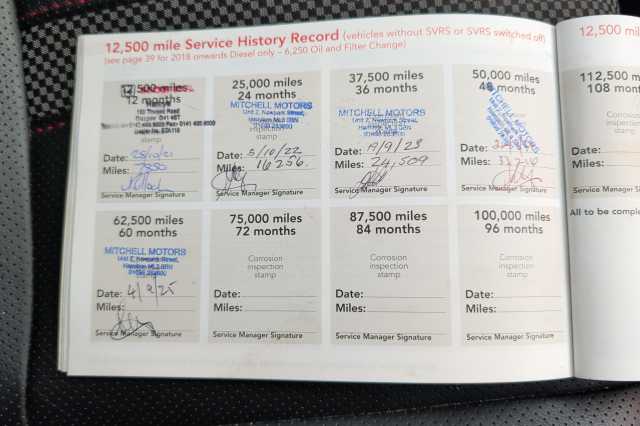 12,500 mile Service History Record (vehicles without SVRS or SVRS switched off)
(see page 39 for 2018 onwards Diesel only – 6,250 Oil and Filter Change)
12,500 miles
12 months
inspection
stamp
Date:
Miles:
Service Manager Signature
25,000 miles
24 months
MITCHELL MOTORS
Unit 2, Newpark Street,
Hamilton ML3 0BN
inspection
stamp
Date: 5/10/22
Miles: 16256.
Service Manager Signature
37,500 miles
36 months
MITCHELL MOTORS
Unit 2, Newpark Street,
Hamilton ML3 0BN
inspection
stamp
Date: 19/9/23
Miles: 24,509
Service Manager Signature
50,000 miles
48 months
MITCHELL MOTORS
stamp
Date:
Miles:
Service Manager Signature
62,500 miles
60 months
MITCHELL MOTORS
Unit 2, Newpark Street,
Hamilton ML3 0BN
stamp
Date: 4/9/25
Miles:
Service Manager Signature
75,000 miles
72 months
Corrosion
inspection
stamp
Date:
Miles:
Service Manager Signature
87,500 miles
84 months
Corrosion
inspection
stamp
Date:
Miles:
Service Manager Signature
100,000 miles
96 months
Corrosion
inspection
stamp
Date:
Miles:
Service Manager Signature
12,500 mil
112,500 m
108 mont
Date:
Miles:
Service Manag
All to be comple